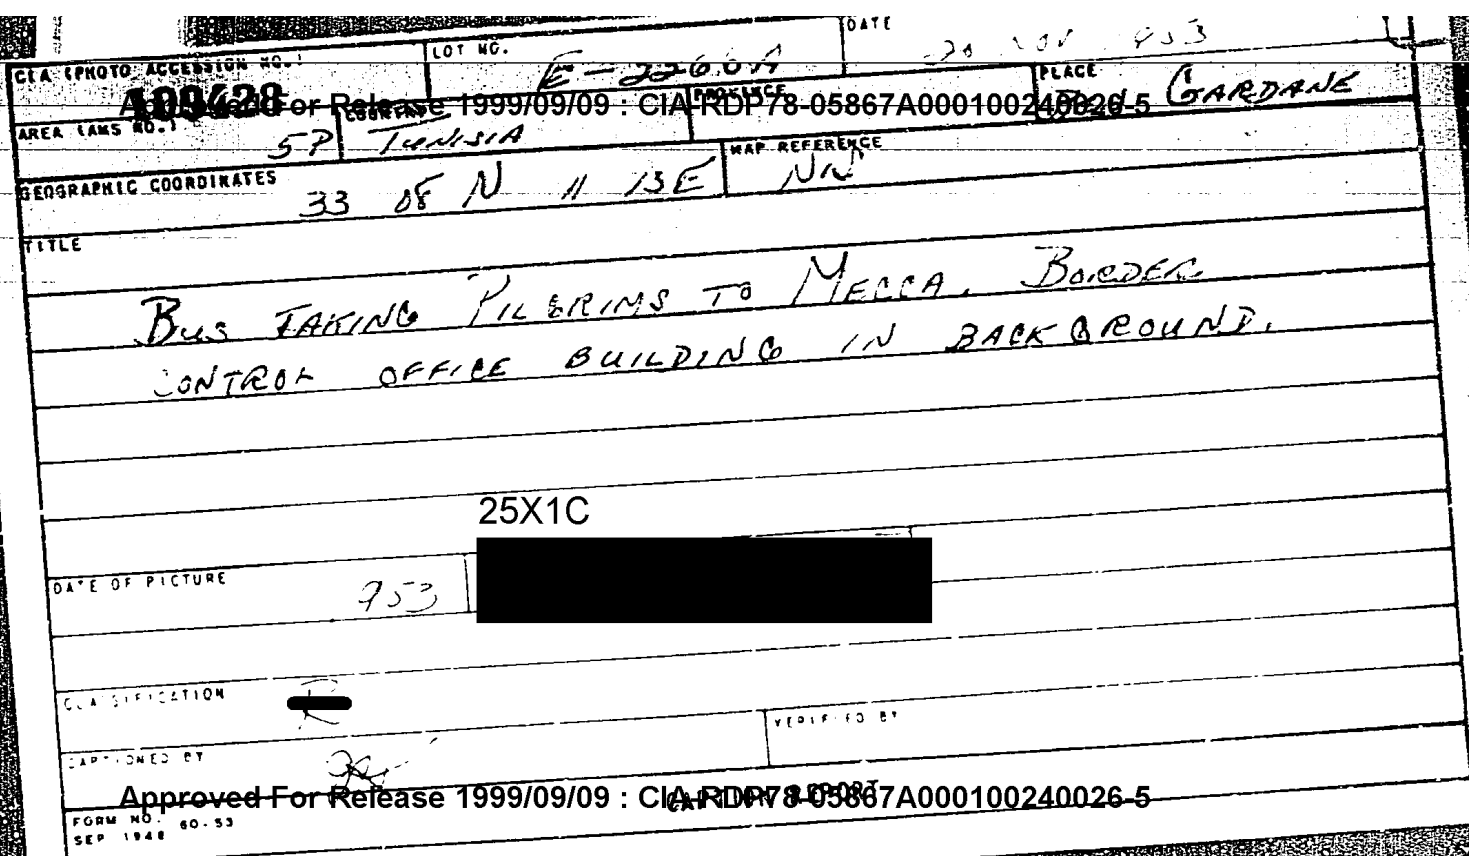 CIA (PHOTO ACCESSION NO.)
LOT NO.
E-2260A
DATE
20 NOV 953
109428
Approved For Release 1999/09/09 : CIA-RDP78-05867A000100240026-5
AREA (AMS NO.)
5P
COUNTRY
TUNISIA
PROVINCE
PLACE
BEN GARDANE
GEOGRAPHIC COORDINATES
33 08 N 11 13E
MAP REFERENCE
NN
TITLE
BUS TAKING PILGRIMS TO MECCA. BORDER
CONTROL OFFICE BUILDING IN BACKGROUND.
25X1C
DATE OF PICTURE
953
CLASSIFICATION
R
CAPTIONED BY
VERIFIED BY
Approved For Release 1999/09/09 : CIA-RDP78-05867A000100240026-5
REPORT
FORM NO. 60-53
SEP 1948